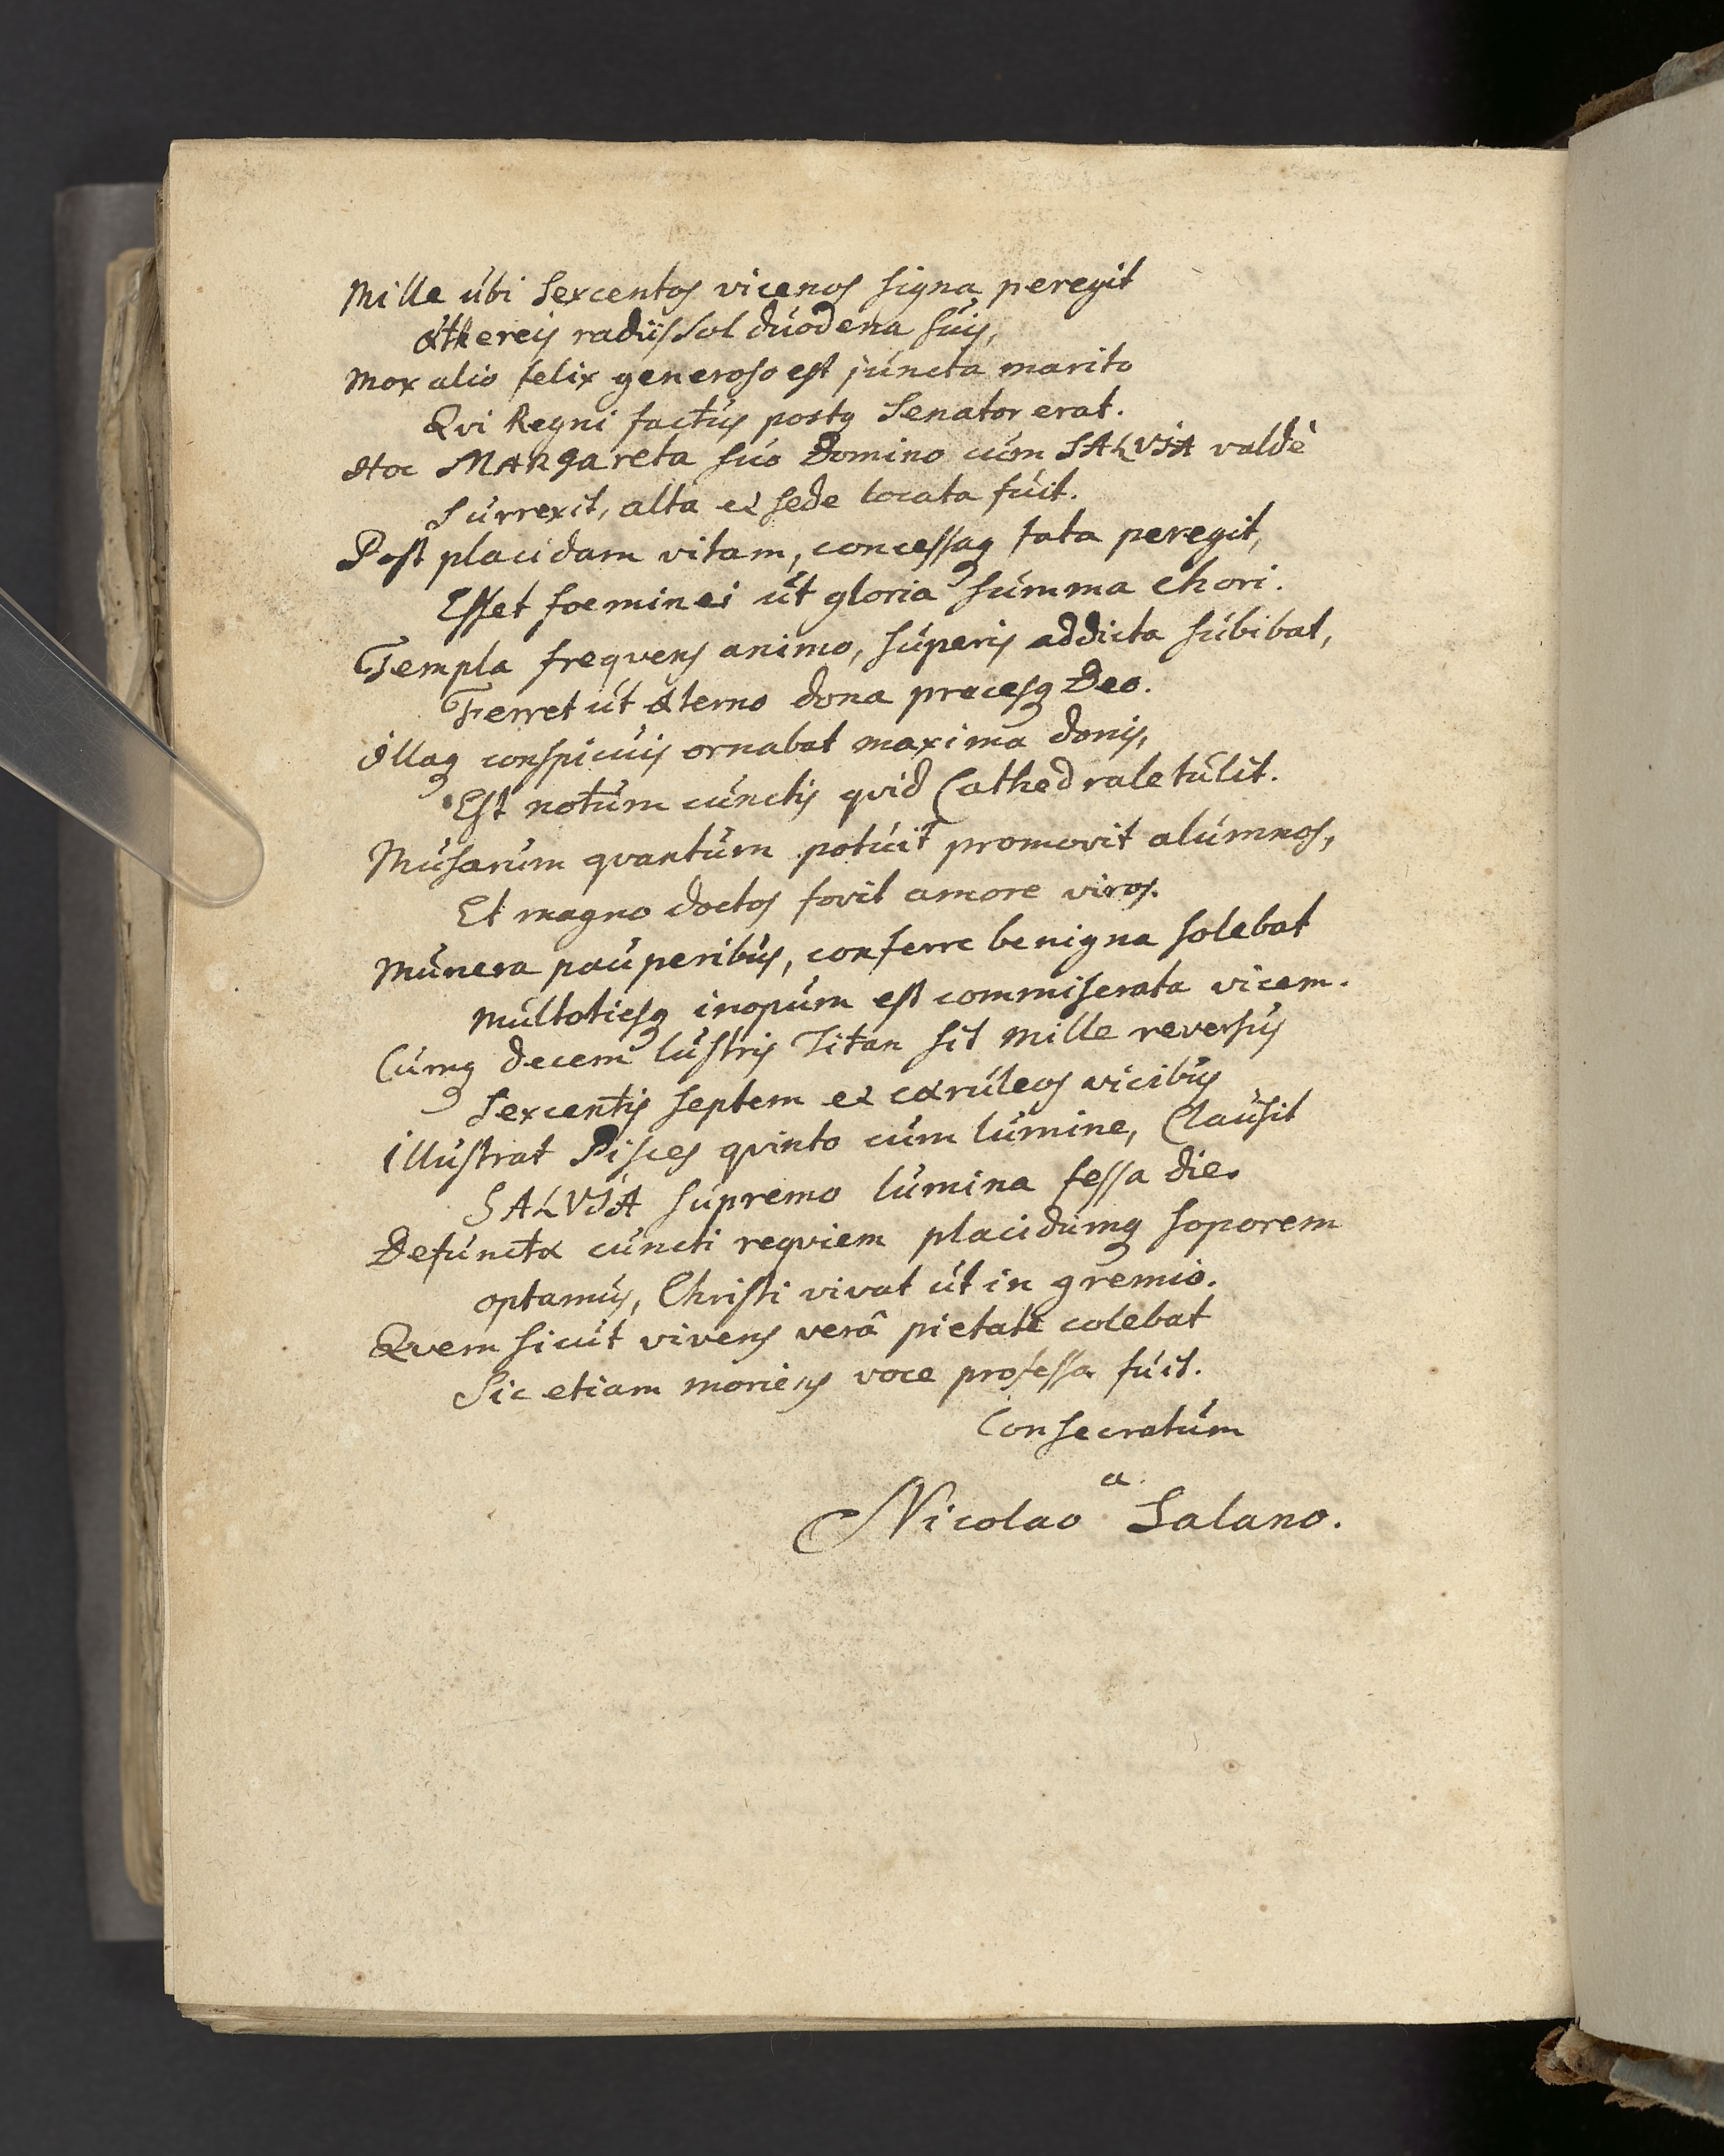 Mille ubi Sexcentos vicenos signa peregit
æthereis radiis Sol duodena suis,
Mox alio felix generoso est juncta marito
Qvi Regni factus postq Senator erat.
Hoc MARgareta suo Domino cum SALVIA valdè
Surrexit, alta et sede locata fuit.
Post placidam vitam, concessaq fata peregit,
Esset foeminei ut gloria summa chori.
Templa freqvens animo, superis addicta subibat,
Ferret ut æterno dona precesq Deo.
Illaq conspicuis ornabat maxima donis,
Est notum cunctis qvid Cathedrale tulit.
Musarum qvantum potuit promovit alumnos,
Et magno doctos fovit amore viros.
Munera pauperibus, conferre benigna solebat
Multotiesq inopum est commiserata vicem.
Cumq decem lustris Titan sit mille reversus
Sexcentis septem et cæruleos vicibus
Illustrat Pisces qvinto cum lumine, Clausit
SALVIA supremo lumina fessa die.
Defunctæ cuncti reqviem placidumq soporem
optamus, Christi vivat ut in gremio.
Qvem sicut vivens verâ pietate colebat
Sic etiam moriens voce professa fuit.
Consecratum
a
Nicolao Salano.